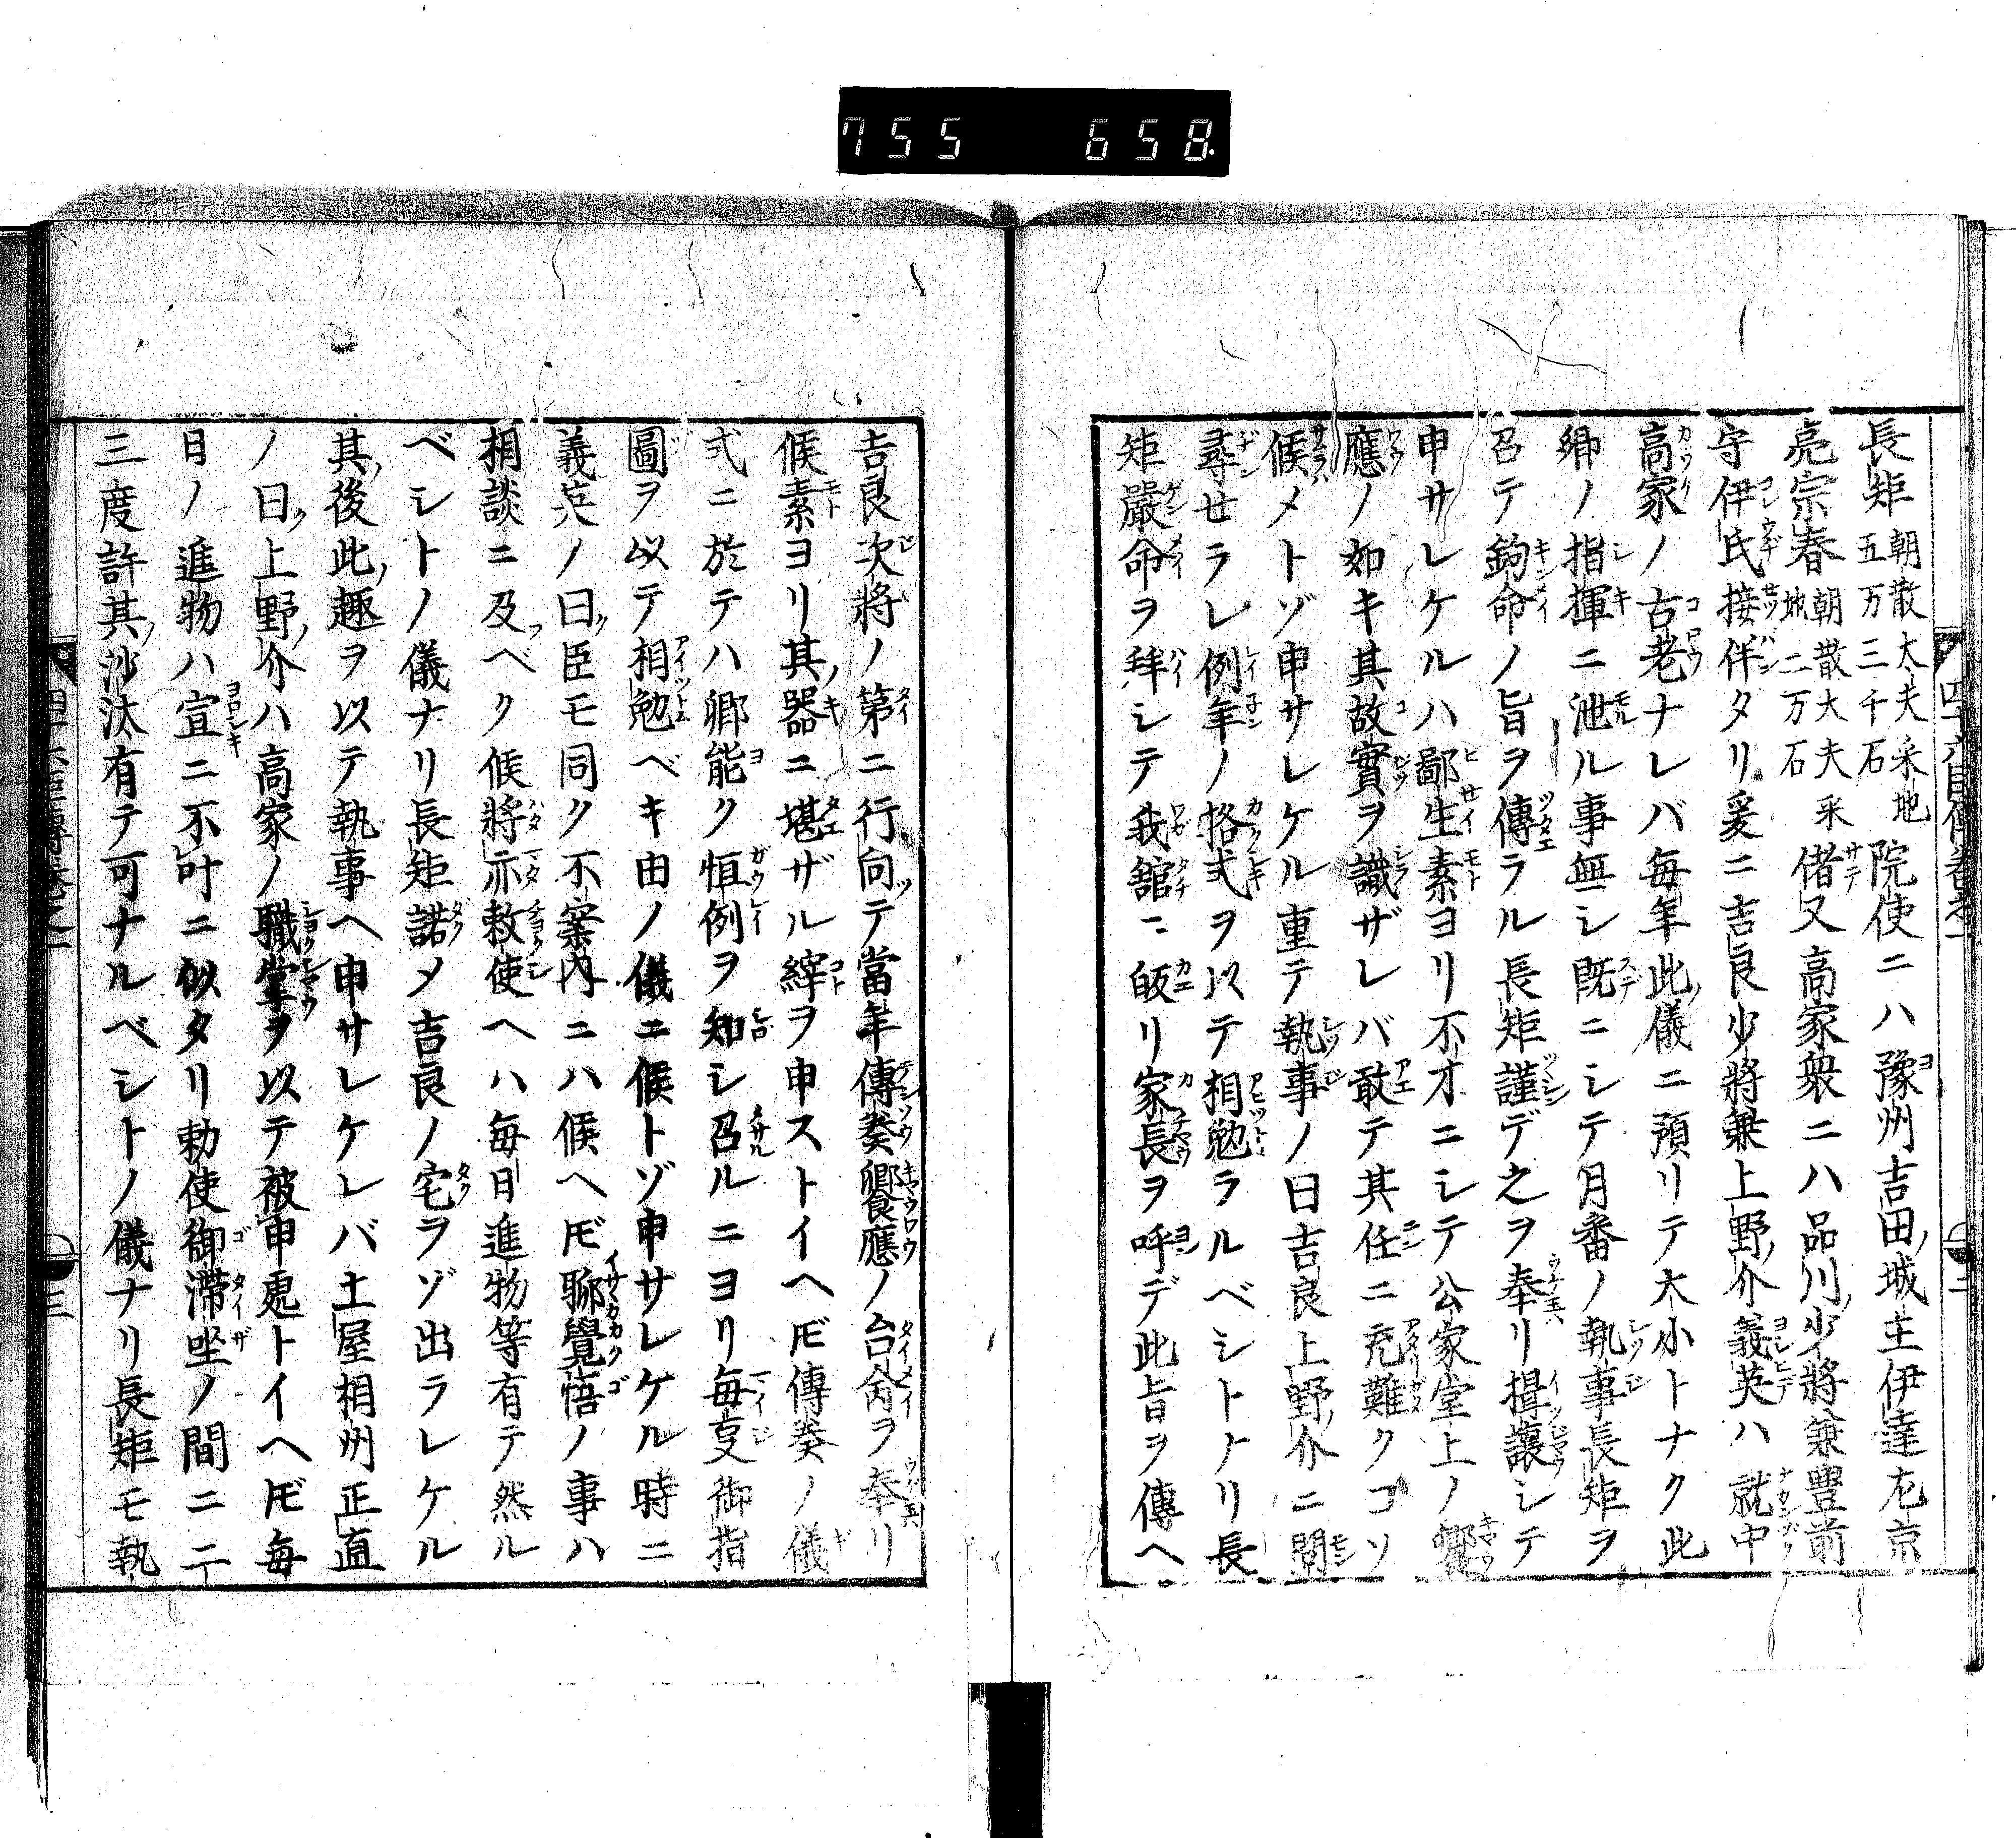 755 658
長矩 朝散太夫采地五万三千石 院使ニハ豫州吉田ノ城主伊達左京
亮宗春 朝散大夫采地二万石 偖又高家衆ニハ品川少將兼豊前
守伊氏接伴タリ爰ニ吉良少將兼上野ノ介義英ハ就中
高家ノ古老ナレバ毎年此ノ儀ニ預リテ大小トナク此
卿ノ指揮ニ泄ル事無シ既ニシテ月番ノ執事長矩ヲ
召テ鈞命ノ旨ヲ傳ラル長矩謹デ之ヲ奉リ揖讓シテ
申サレケルハ鄙生素ヨリ不才ニシテ公家堂上ノ饗
應ノ如キ其故實ヲ識ザレバ敢テ其任ニ充難クコソ
候メトゾ申サレケル重テ執事ノ曰吉良上野ノ介ニ問
尋セラレ例年ノ格式ヲ以テ相勉ラルベシトノリ長
矩嚴命ヲ拜シテ我舘ニ皈リ家長ヲ呼デ此旨ヲ傳ヘ
四十六臣傳卷之一 二
吉良次將ノ第ニ行向テ當年傳奏饗應ノ台命ヲ奉リ
候素ヨリ其ノ器ニ堪ザル縡ヲ申ストイヘ𪜈傳奏ノ儀
式ニ於テハ卿能ク恒例ヲ知シ召ルニヨリ毎亥御指
圖ヲ以テ相勉ベキ由ノ儀ニ候トゾ申サレケル時ニ
義英ノ曰ク臣モ同ク不案内ニハ候ヘ𪜈聊覺悟ノ事ハ
相談ニ及ベク候將亦敕使ヘハ毎日進物等有テ然ル
ベシトノ儀ナリ長矩諾メ吉良ノ宅ヲゾ出ラレケル
其ノ後此ノ趣ヲ以テ執事ヘ申サレケレバ土屋相州正直
ノ曰ク上野ノ介ハ高家ノ職掌ヲ以テ被申處トイヘ𪜈毎
日ノ進物ハ宜ニ不叶ニ似タリ勅使御滯坐ノ間ニ二
三度許其ノ沙汰有テ可ナルベシトノ儀ナリ長矩モ執
四十六臣傳卷之一 三